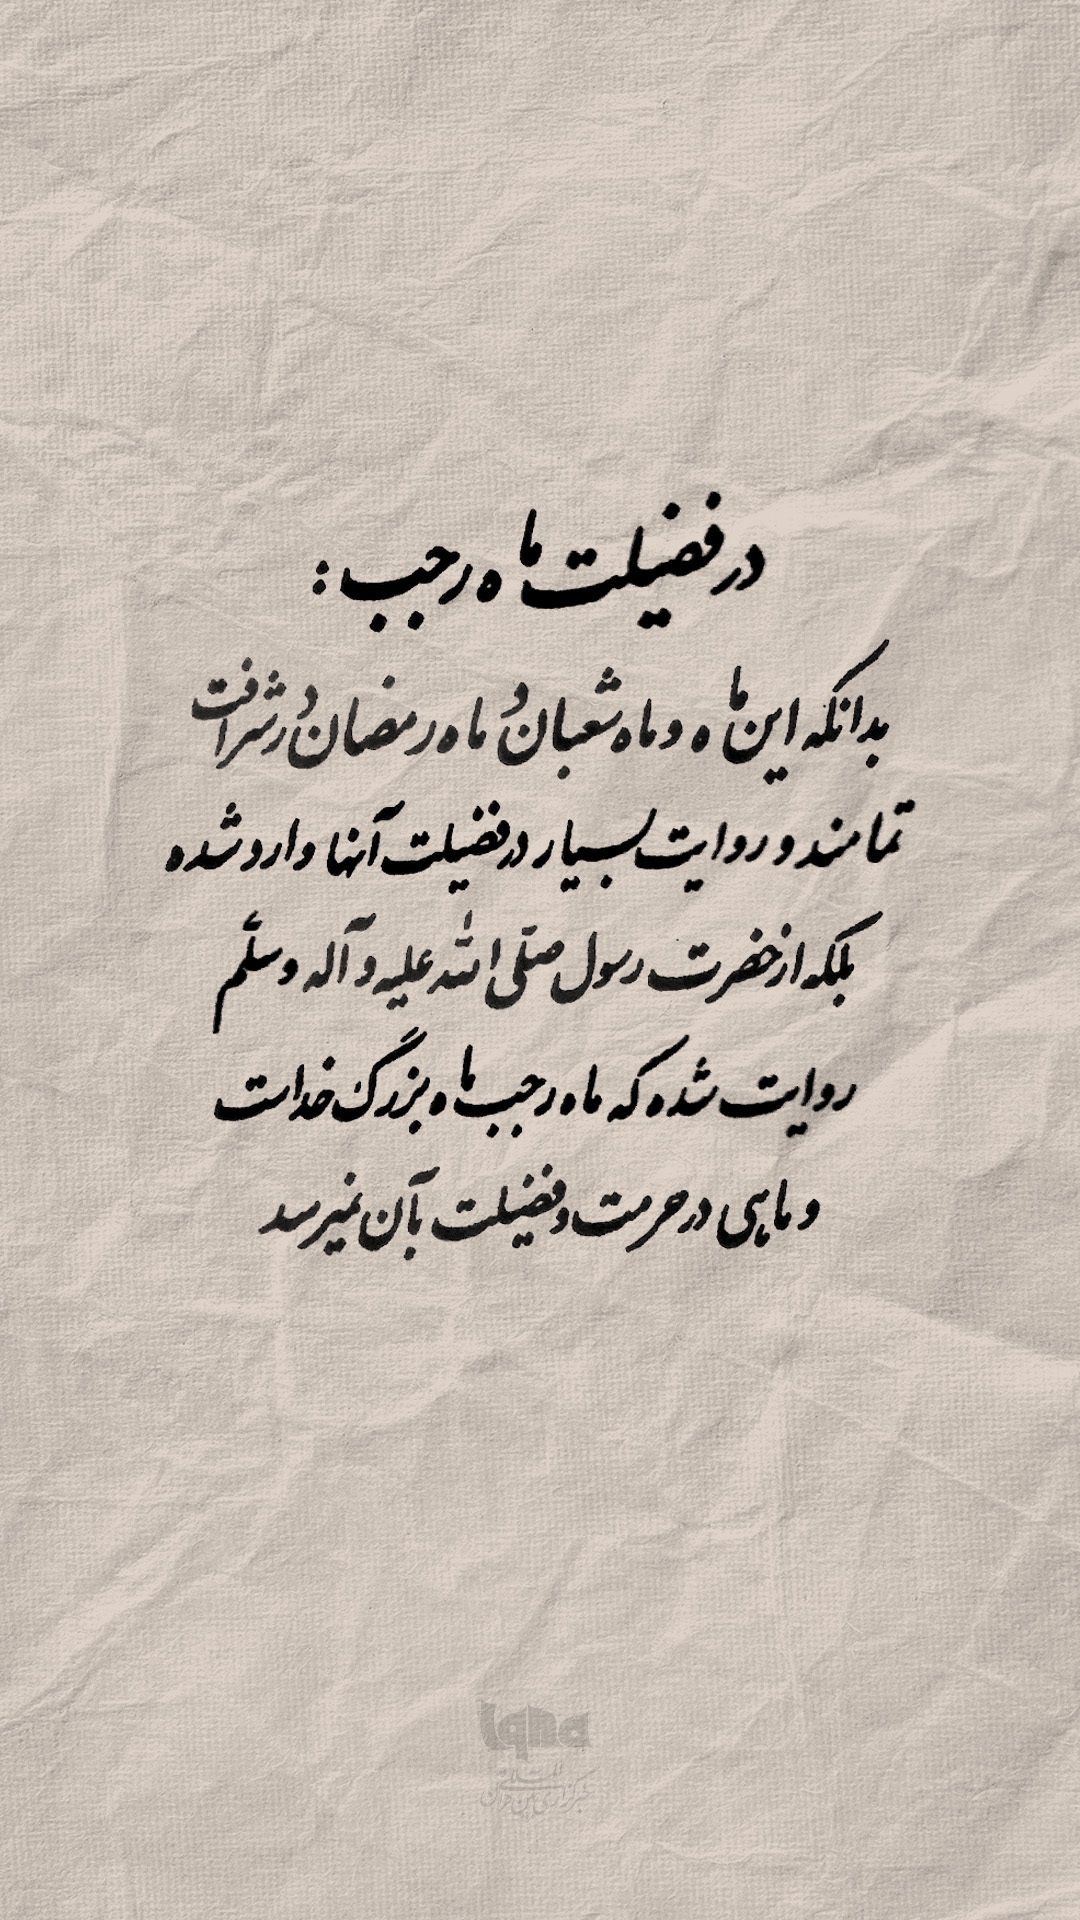 در فضیلت ماه رجب :
بدانکه این ماه و ماه شعبان و ماه رمضان در شرافت
تمامند و روایت بسیار در فضیلت آنها وارد شده
بلکه از حضرت رسول صلّی الله علیه و آله و سلّم
روایت شده که ماه رجب ماه بزرگ خداست
و ماهی در حرمت و فضیلت بآن نمیرسد
iqna
خبرگزاری بین المللی قرآن